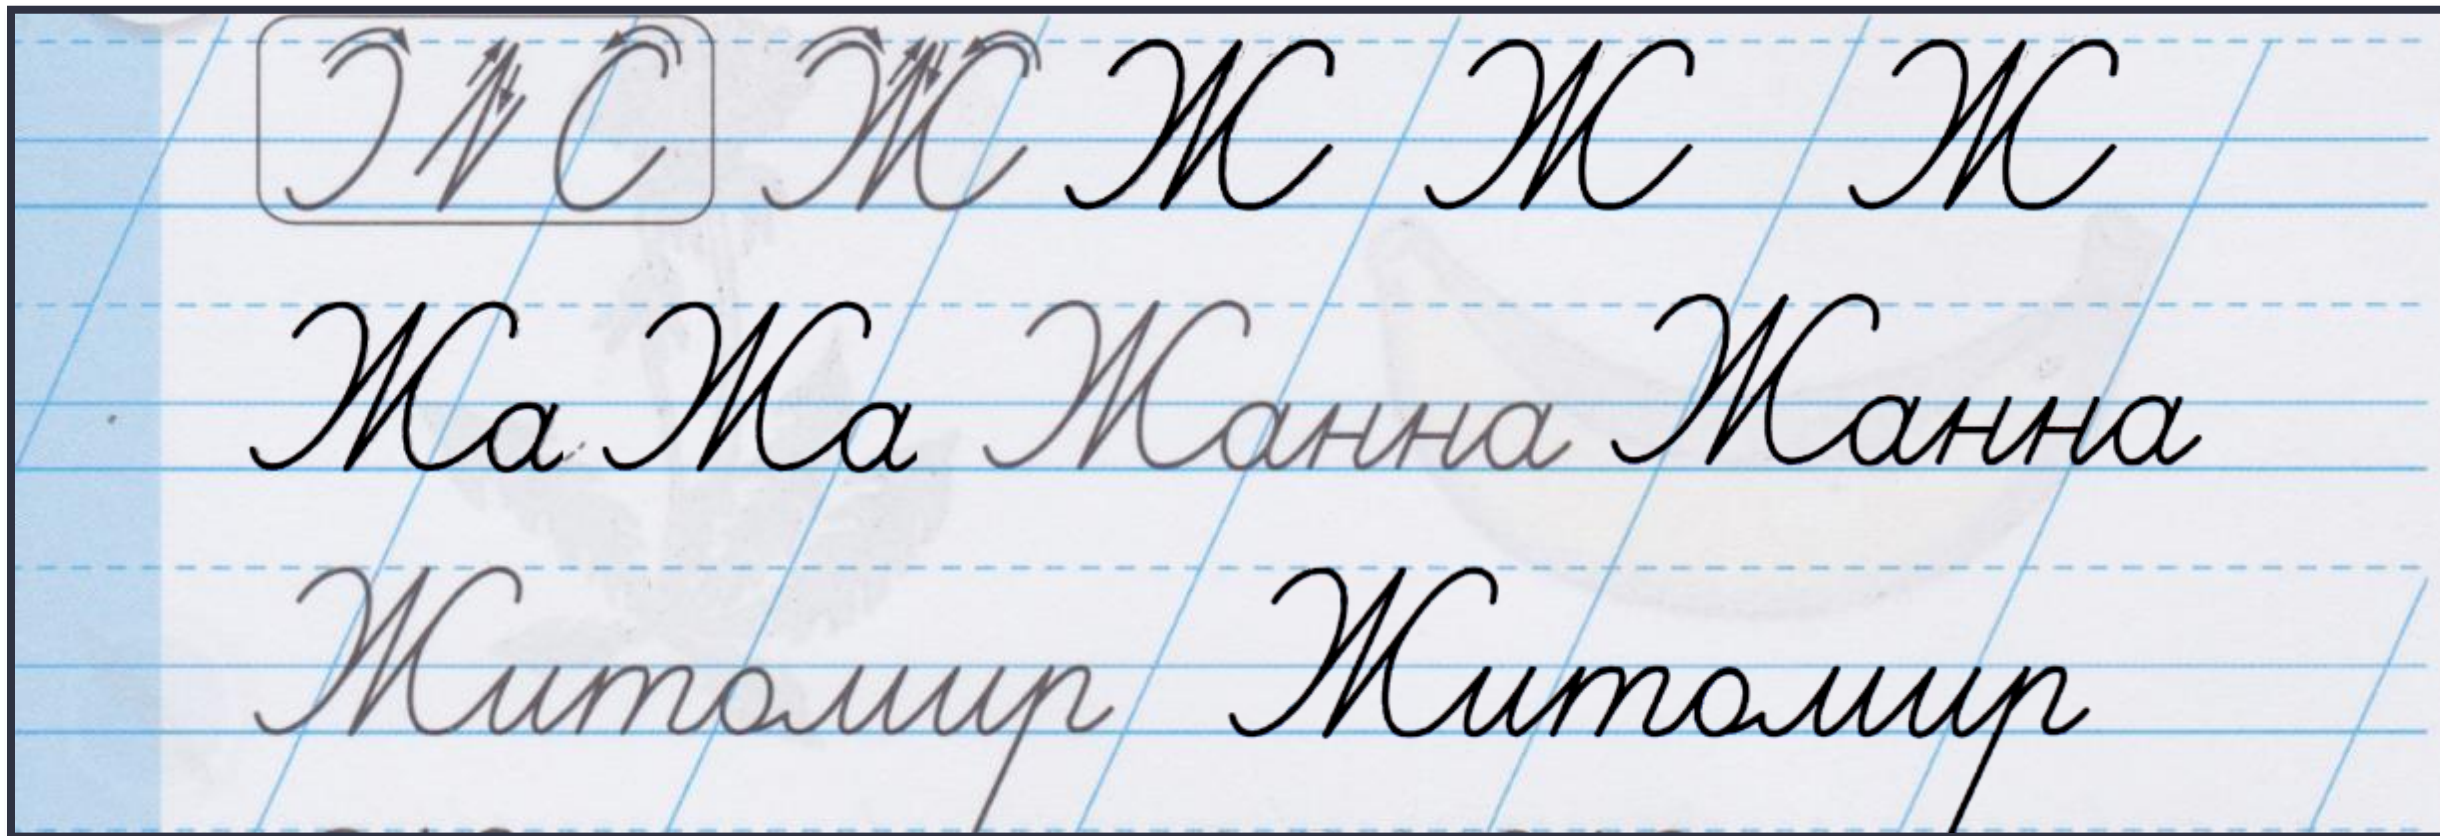 Ж Ж Ж Ж
Жа Жа Жанна Жанна
Житомир Житомир